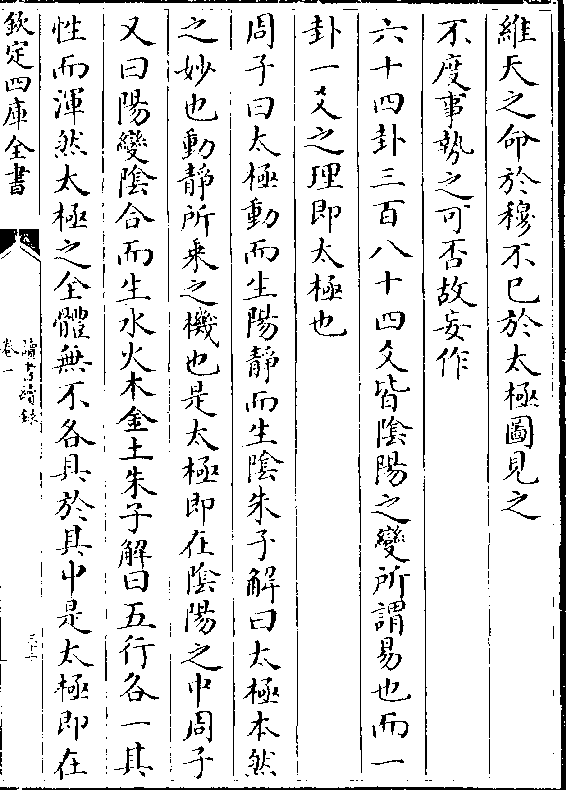 維天之命於穆不已於太極圖見之
不度事勢之可否故妄作
六十四卦三百八十四爻皆陰陽之變所謂易也而一
卦一爻之理即太極也
周子曰太極動而生陽靜而生陰朱子解曰太極本然
之妙也動靜所乗之機也是太極即在陰陽之中周子
又曰陽變隂合而生水火木金土朱子解曰五行各一其
性而渾然太極之全體無不各具於其中是太極即在
欽定四庫全書
讀書續録
卷一